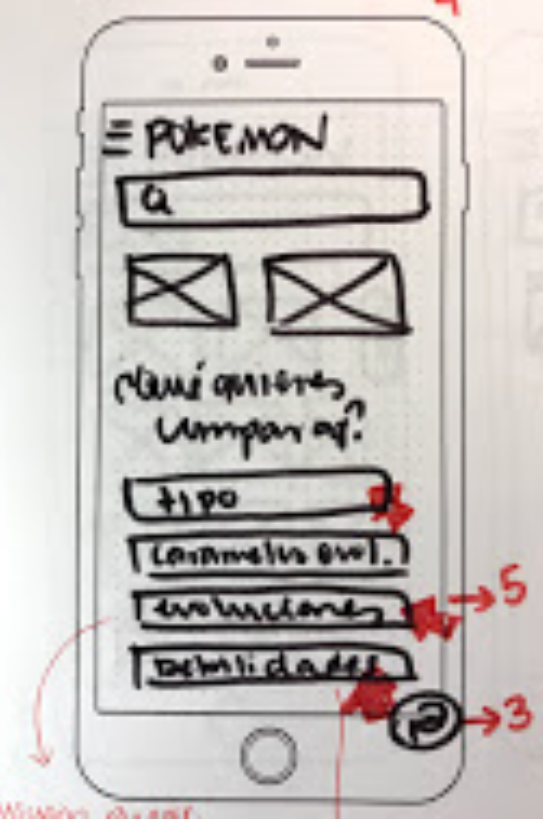 POKEMON
¿Qué quieres
comparar?
tipo
caramelos evol.
evoluciones
5
Debilidades
3